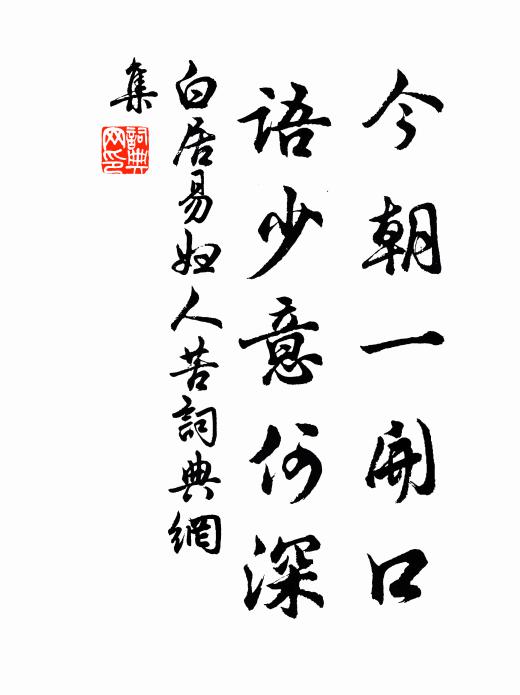 今朝一開口
語少意何深
白居易婦人苦詞典網
集
詞典
网印